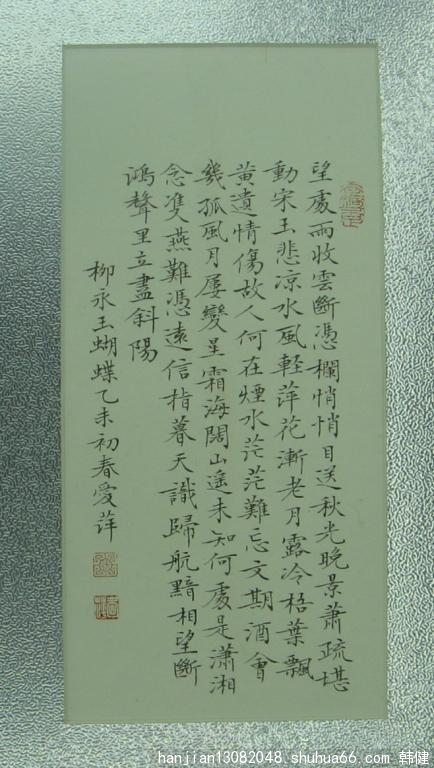 望處雨收雲斷憑欄悄悄目送秋光晚景蕭疏堪
動宋玉悲涼水風軽萍花漸老月露冷梧葉飄
黃遺情傷故人何在煙水茫茫難忘文期酒會
幾孤風月屢變星霜海闊山遙未知何處是瀟湘
念雙燕難憑遠信指暮天識歸航黯相望斷
鴻聲里立盡斜陽
柳永玉蝴蝶乙未初春愛萍
hanjian13082048 shuhua66.com 韩健